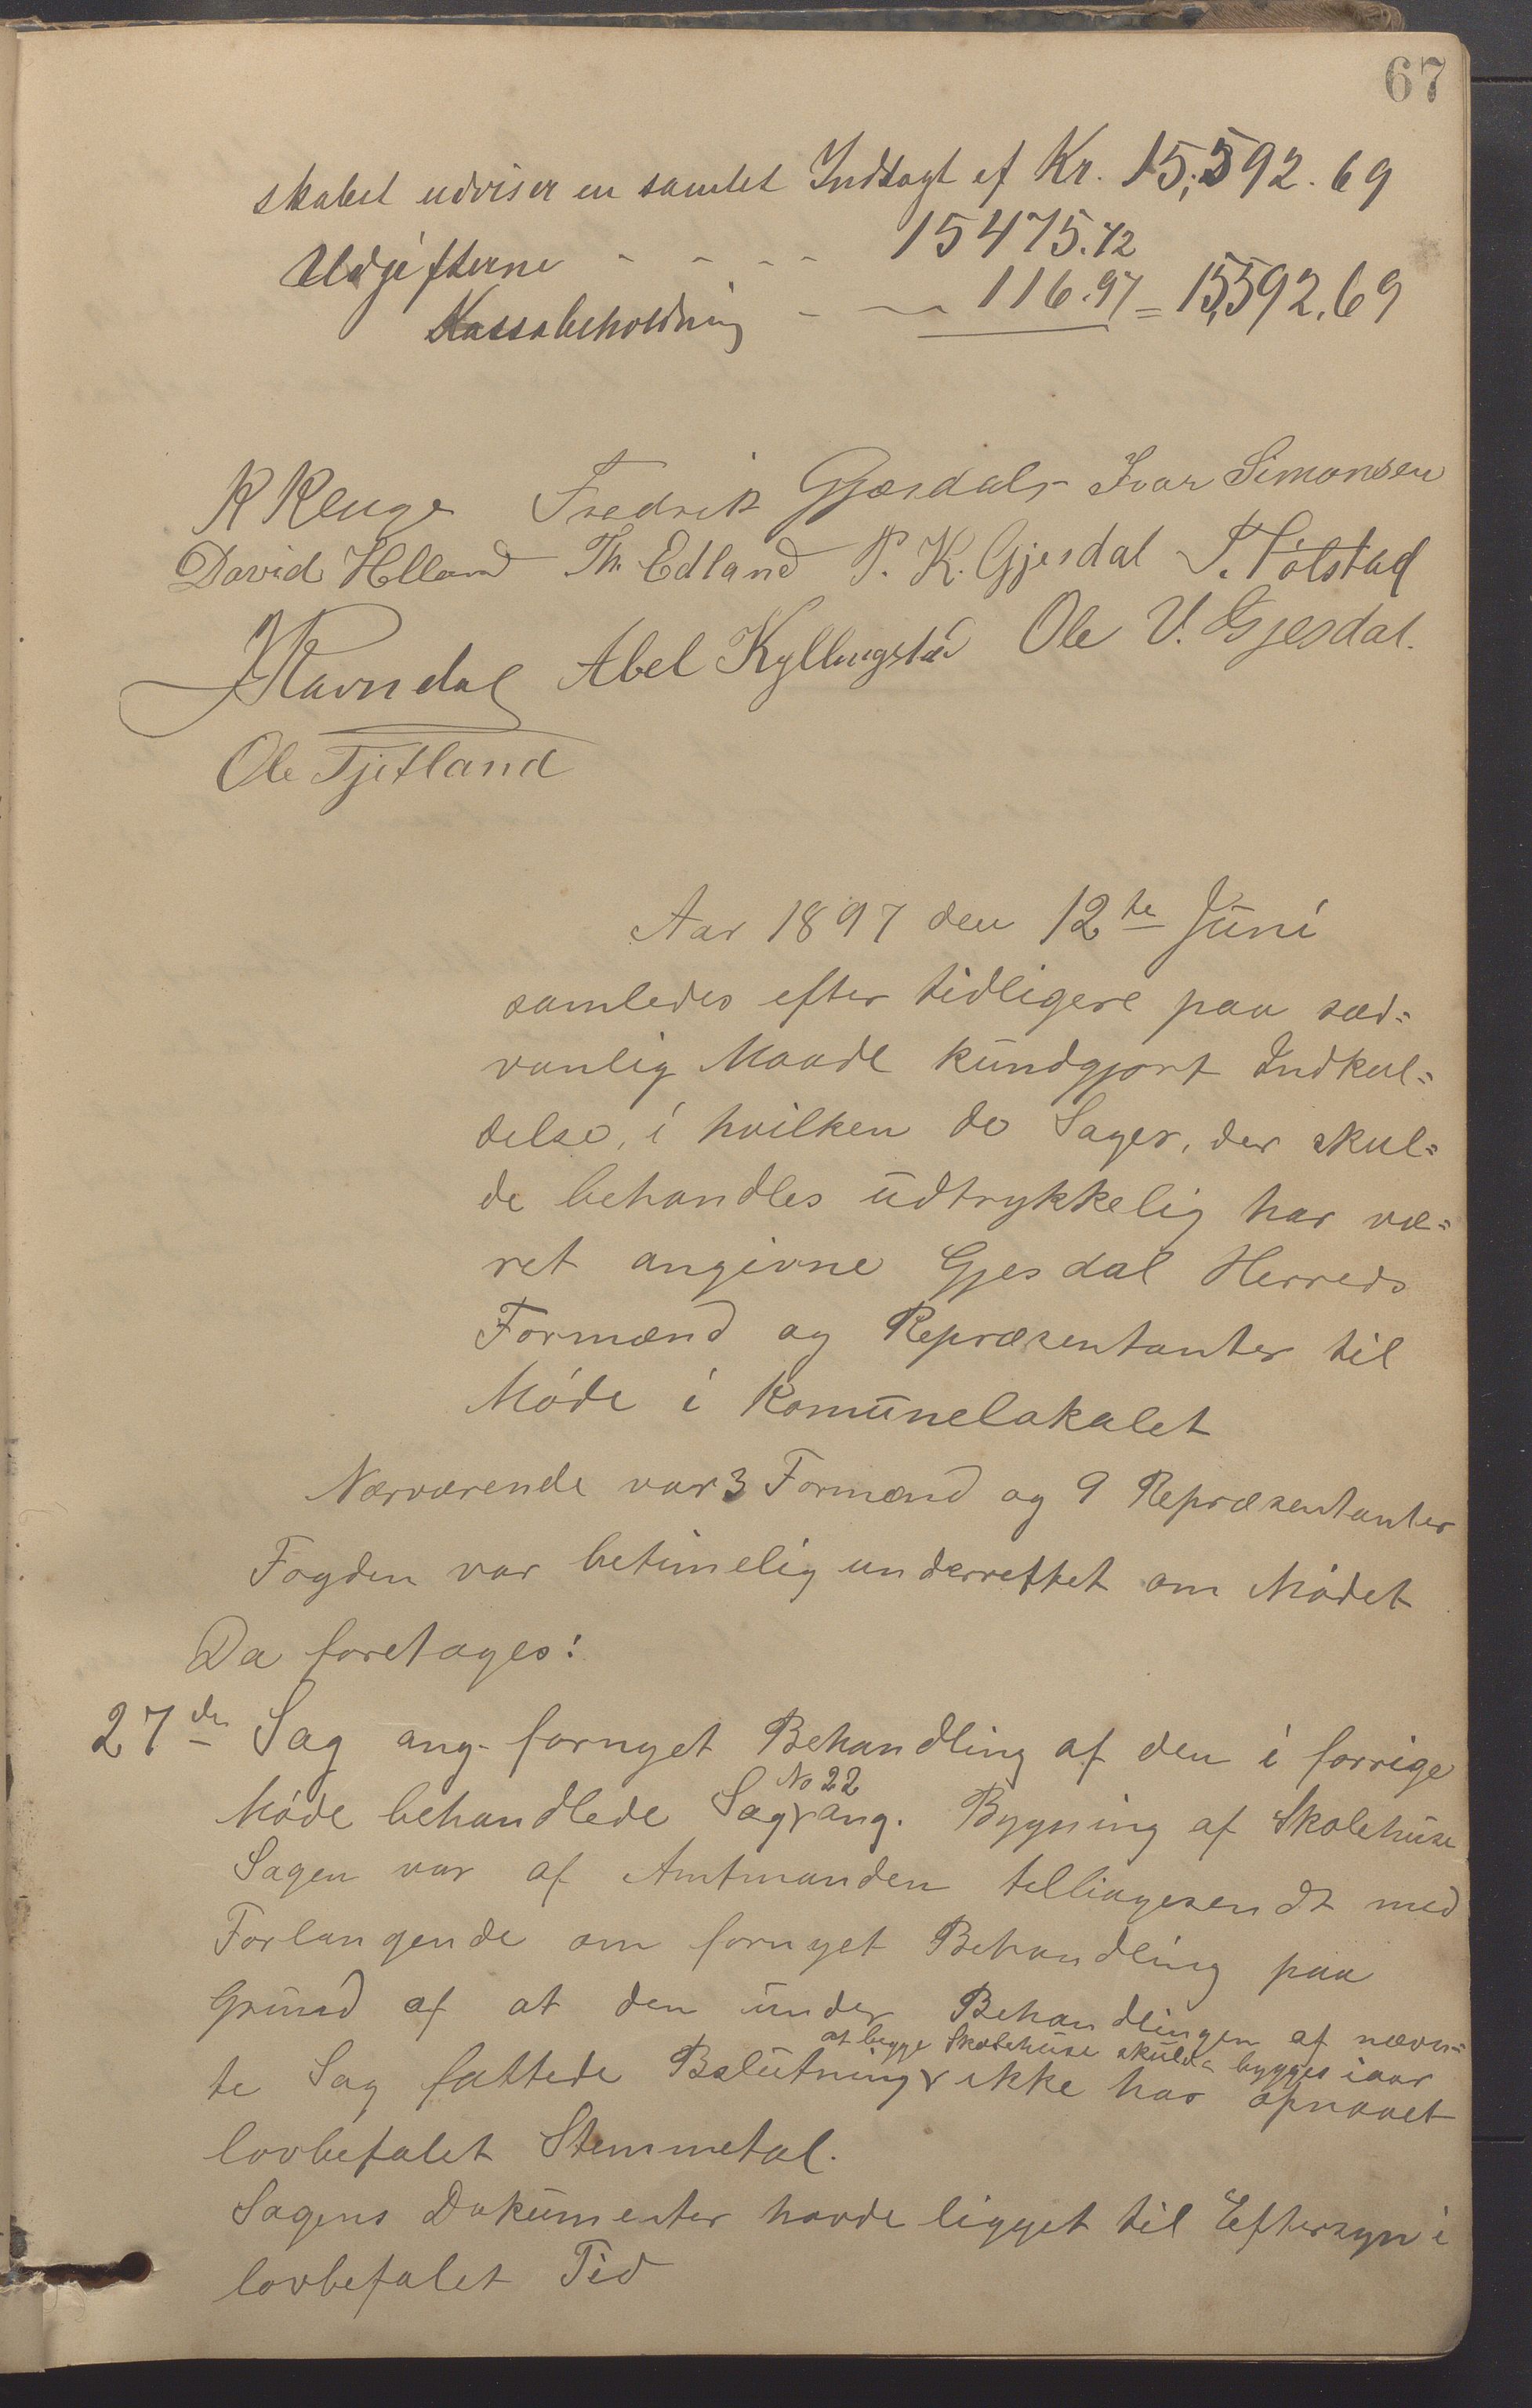 67
skabet udviser en samlet Indtægt af Kr. 15,592.69
Udgifterne - - - - 15475.72
Kassabeholdning - - 116.97 = 15,592,69
K Kluge Fredrik Gjesdal Ivar Simonsen
David Helland Th. Edland P. K. Gjesdal T. Tolstad
Ravndal Abel Kyllingstad Ole V. Gjesdal.
Ole Tjetland
Aar 1897 den 12te Juni
samledes efter tidligere paa sæd=
vanlig Maade kundgjort Indkal=
delse, i hvilken de Sager, der skul=
de behandles udtrykkelig har væ=
ret angivne Gjesdal Herreds
Formænd og Repræsentanter til
Møde i Komunelokalet
Nærværende var 3 Formænd og 9 Repræsentanter
Fogden var betimelig underrettet om Mødet
Da foretages:
27de Sag ang. fornyet Behandling af den i forrige
Møde behandlede Sag No 22 ang. Bygning af Skolehuse
Sagen var af Amtmanden tilbagesendt med
Forlangende om fornyet Behandling paa
Grund af at den under Behandlingen af nævn=
te Sag fattede Beslutning at begge Skolehuse skulde bygges iaar ikke har opnaaet
lovbefalet Stemmetal.
Sagens Dokumenter havde ligget til Eftersyn i
lovbefalet Tid